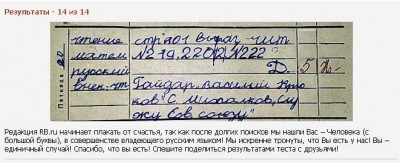 Результаты - 14 из 14
чтение стр 101 выраз чит
матем №219, 220(2), №222
русский Д. 5
внек. чт Гайдар. Василий Крю
ков С. Михалков, Слу
жу Сов. союзу"
Пятница 20
Редакция RB.ru начинает плакать от счастья, так как после долгих поисков мы нашли Вас – Человека (с
большой буквы), в совершенстве владеющего русским языком! Мы искренне тронуты, что Вы есть у нас! Вы –
единичный случай! Спасибо, что вы есть! Спешите поделиться результатами теста с друзьями!